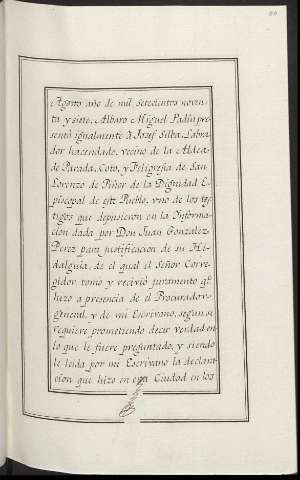 Agosto año de mil setecientos noven-
ta y siete, Albaro Miguel Padin pre
sentó igualmente a Josef Silba, Labra
dor hacendado, vecino de la Aldea
de Parada, Coto, y Feligresia de San
Lorenzo de Piñor de la Dignidad E-
piscopal de este Pueblo, vno de los tes-
tigos que depusieron en la Informa-
cion dada por Don Juan Gonzalez
Perez para justificacion de su Hi-
dalguia, de el qual el Señor Corre-
gidor tomó y recivió juramento qe.
hizo a presencia de el Procurador
general, y de mi Escrivano, segun se
requiere prometiendo decir verdad en
lo que le fuere preguntado, y siendo
le leida por mi Escrivano la declara-
cion que hizo en esta Ciudad en los